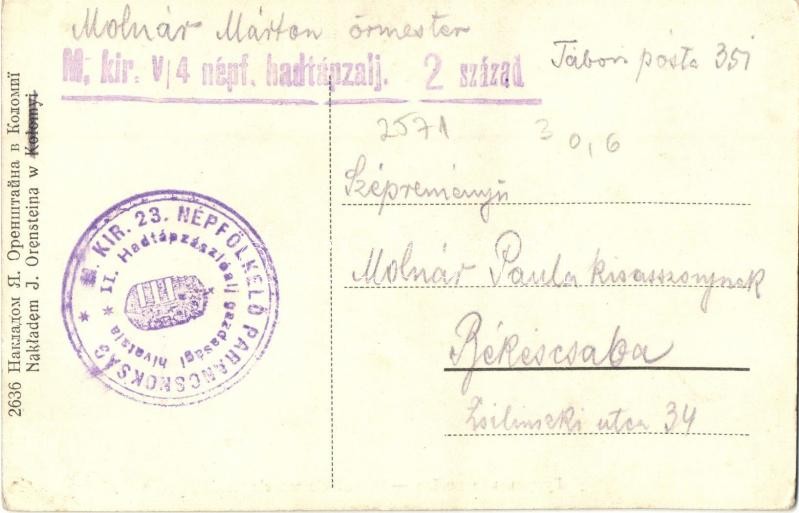 Molnár Márton őrmester
M. kir. V/4 népf. hadtápzalj. 2 század
Tábori posta 351
2571
30,6
Szépreményű
Molnár Paula kisasszonynak
Békéscsaba
Zsilinszki utca 34
M. KIR. 23. NÉPFÖLKELŐ PARANCSNOKSÁG
* II. Hadtápzászlóalj gazdasági hivatala *
2636 Накладом Я. Оренштайна в Коломиї
Nakładem J. Orensteina w Kołomyi